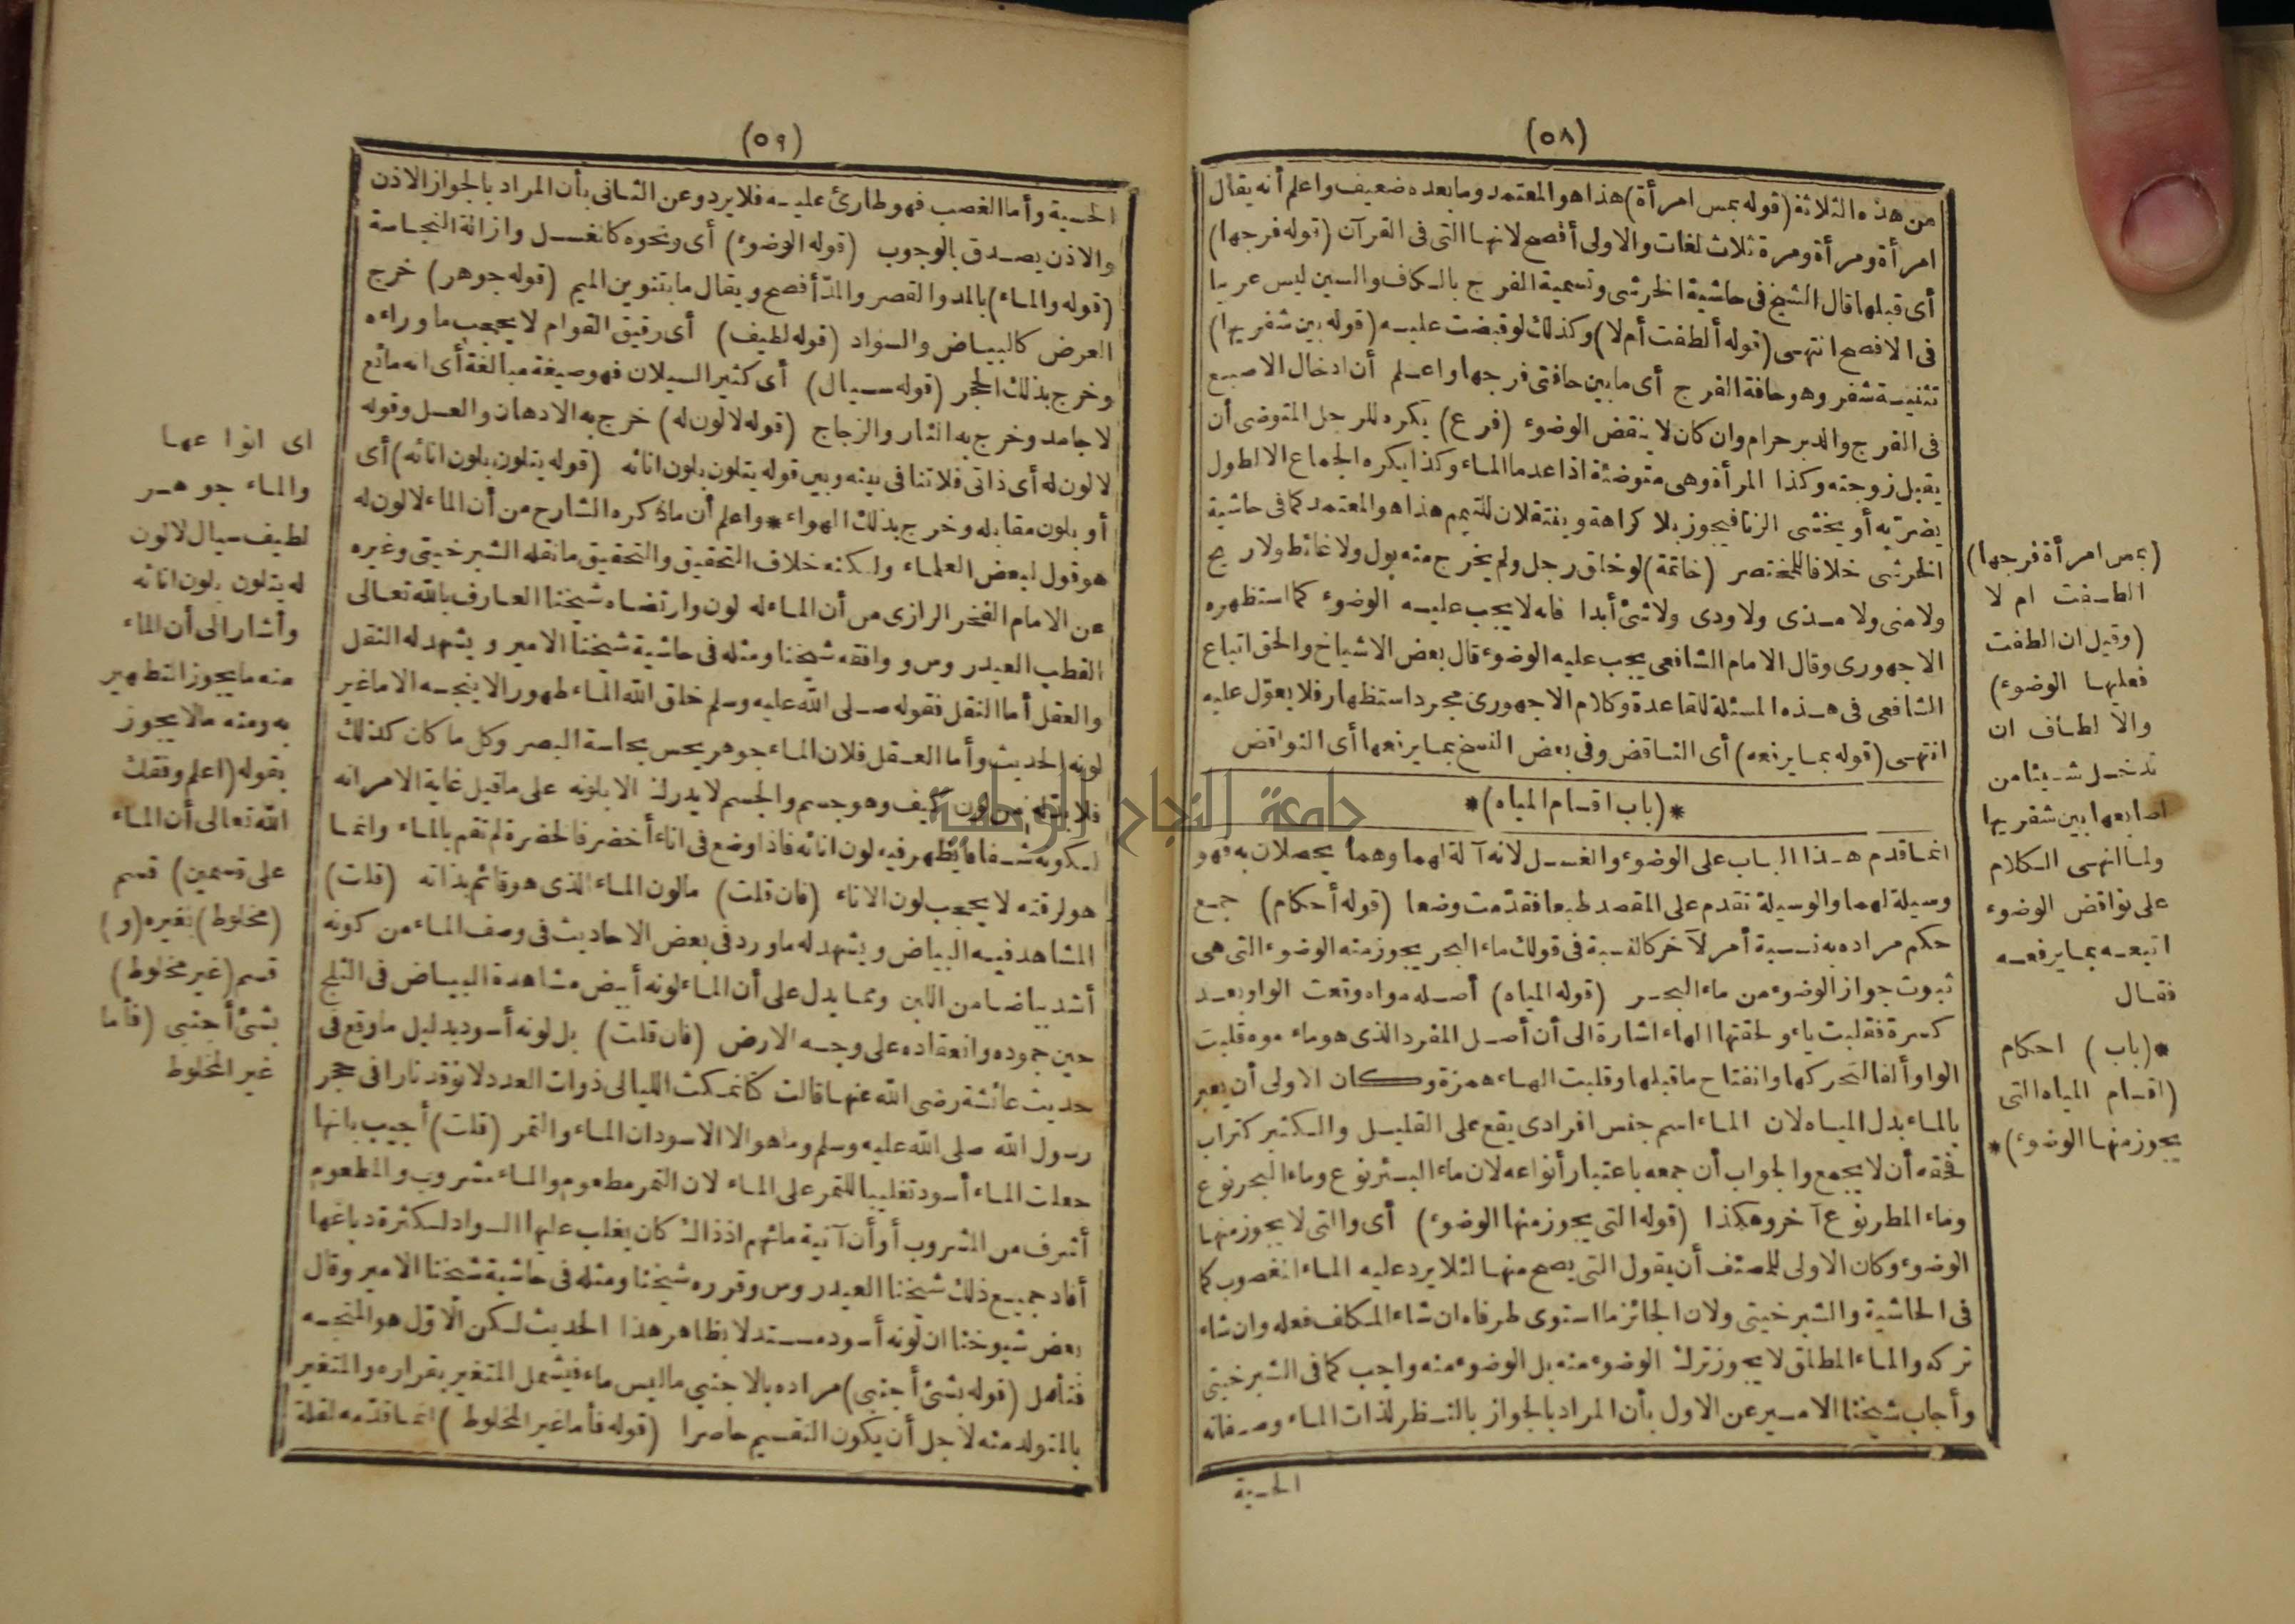 (٥٨)
من هذه الثلاثة (قوله بمس امرأة) هذا هو المعتمد وما بعده ضعيف واعلم أنه يقال
امرأة ومرأة ومرة ثلاث لغات والاولى أفصح لانها التى فى القرآن (قوله فرجها)
أى قبلها قال الشيخ فى حاشية الخرشى وتسمية الفرج بالكاف والسين ليس عربيا
فى الافصح انتهى (قوله ألطفت أم لا) وكذلك لو قبضت عليه (قوله بين شفريها)
تثنية شفر وهو حافة الفرج أى ما بين حافتى فرجها واعلم أن ادخال الاصبع
فى الفرج والدبر حرام وان كان لا ينقض الوضوء (فرع) يكره للرجل المتوضى أن
يقبل زوجته وكذا المرأة وهى متوضئة اذا عدما الماء وكذا يكره الجماع الا لطول
يضر به أو يخشى الزنا فيجوز بلا كراهة وينتقلان للتيمم هذا هو المعتمد كما فى حاشية
الخرشى خلافا للمختصر (خاتمة) لو خلق رجل ولم يخرج منه بول ولا غائط ولا ريح
ولا منى ولا مذى ولا ودى ولا شئ أبدا فانه لا يجب عليه الوضوء كما استظهره
الاجهورى وقال الامام الشافعى يجب عليه الوضوء قال بعض الاشياخ والحق اتباع
الشافعى فى هذه المسئلة للقاعدة وكلام الاجهورى مجرد استظهار فلا يعوّل عليه
انتهى (قوله بما يرفعه) أى الناقض وفى بعض النسخ بما يرفعها أى النواقض
*(باب اقسام المياه)*
انما قدم هذا الباب على الوضوء والغسل لانه آلة لهما وهما يحصلان به فهو
وسيلة لهما والوسيلة تقدم على المقصد طبعا فقدّمت وضعا (قوله أحكام) جمع
حكم مراده به نسبة أمر لآخر كالنسبة فى قولك ماء البحر يجوز منه الوضوء التى هى
ثبوت جواز الوضوء من ماء البحر (قوله المياه) أصله مواه وقعت الواو بعد
كسرة فقلبت ياء ولحقتها الهاء اشارة الى أن أصل المفرد الذى هو ماء موه قلبت
الواو ألفا لتحركها وانفتاح ما قبلها وقلبت الهاء همزة وكان الاولى أن يعبر
بالماء بدل المياه لان الماء اسم جنس افرادى يقع على القليل والكثير كتراب
فحقه أن لا يجمع والجواب أن جمعه باعتبار أنواعه لان ماء البئر نوع وماء البحر نوع
وماء المطر نوع آخر وهكذا (قوله التى يجوز منها الوضوء) أى والتى لا يجوز منها
الوضوء وكان الاولى للمصنف أن يقول التى يصح منها لئلا يرد عليه الماء المغصوب كما
فى الحاشية والشبرخيتى ولان الجائز ما استوى طرفاه ان شاء المكلف فعله وان شاء
تركه والماء المطلق لا يجوز ترك الوضوء منه بل الوضوء منه واجب كما فى الشبرخيتى
وأجاب شيخنا الامير عن الاول بأن المراد بالجواز بالنظر لذات الماء وصفاته
الحسية
(بمس امرأة فرجها)
الطفت ام لا
(وقيل ان الطفت
فعليها الوضوء)
والالطاف ان
تدخل شيئا من
اصابعها بين شفريها
ولما انهى الكلام
على نواقض الوضوء
اتبعه بما يرفعه
فقال
*(باب) احكام
(اقسام المياه التى
يجوز منها الوضوء)*
(٥٩)
الحسية وأما الغصب فهو طارئ عليه فلا يرد وعن الثانى بأن المراد بالجواز الاذن
والاذن يصدق بالوجوب (قوله الوضوء) أى ونحوه كالغسل وازالة النجاسة
(قوله والماء) بالمد والقصر والمدّ أفصح ويقال ما بتنوين الميم (قوله جوهر) خرج
العرض كالبياض والسواد (قوله لطيف) أى رقيق القوام لا يحجب ما وراءه
وخرج بذلك الحجر (قوله سيال) أى كثير السيلان فهو صيغة مبالغة أى انه مائع
لا جامد وخرج به النار والزجاج (قوله لا لون له) خرج به الادهان والعسل وقوله
لا لون له أى ذاتى فلا تنافى بينه وبين قوله يتلون بلون انائه (قوله يتلون بلون انائه) أى
أو بلون مقابله وخرج بذلك الهواء * واعلم أن ما ذكره الشارح من أن الماء لا لون له
هو قول لبعض العلماء ولكنه خلاف التحقيق والتحقيق ما نقله الشبرخيتى وغيره
عن الامام الفخر الرازى من أن الماء له لون وارتضاه شيخنا العارف بالله تعالى
القطب العيدروس ووافقه شيخنا ومثله فى حاشية شيخنا الامير ويشهد له النقل
والعقل أما النقل فقوله صلى الله عليه وسلم خلق الله الماء طهورا لا ينجسه الا ما غير
لونه الحديث وأما العقل فلان الماء جوهر يحس بحاسة البصر وكل ما كان كذلك
فلا بد له من لون كيف وهو جسم والجسم لا يدرك الا بلونه على ما قيل غاية الامر انه
لكونه شفافا يظهر فيه لون انائه فاذا وضع فى اناء أخضر فالخضرة لم تقم بالماء وانما
هو لرقته لا يحجب لون الاناء (فان قلت) ما لون الماء الذى هو قائم بذاته (قلت)
المشاهد فيه البياض ويشهد له ما ورد فى بعض الاحاديث فى وصف الماء من كونه
أشد بياضا من اللبن ومما يدل على أن الماء لونه أبيض مشاهدة البياض فى الثلج
حين جموده وانعقاده على وجه الارض (فان قلت) بل لونه أسود بدليل ما وقع فى
حديث عائشة رضى الله عنها قالت كنا نمكث الليالى ذوات العدد لا نوقد نارا فى حجر
رسول الله صلى الله عليه وسلم وما هو الا الاسودان الماء والتمر (قلت) أجيب بانها
جعلت الماء أسود تغليبا للتمر على الماء لان التمر مطعوم والماء مشروب والمطعوم
أشرف من المشروب أو أن آنية مائهم اذ ذاك كان يغلب عليها السواد لكثرة دباغها
أفاد جميع ذلك شيخنا العيدروس وقرره شيخنا ومثله فى حاشية شيخنا الامير وقال
بعض شيوخنا ان لونه أسود مستدلا بظاهر هذا الحديث لكن الاوّل هو المتجه
فتأمل (قوله بشئ أجنبى) مراده بالاجنبى ما ليس ماء فيشمل المتغير بقراره والمتغير
بالمتولد منه لاجل أن يكون التقسيم حاصرا (قوله فأما غير المخلوط) انما قدّمه لقلة
اى انواعها
والماء جوهر
لطيف سيال لا لون
له يتلون بلون انائه
وأشار الى أن الماء
منه ما يجوز التطهير
به ومنه ما لا يجوز
بقوله (اعلم وفقك
الله تعالى أن الماء
على قسمين) قسم
(مخلوط) بغيره (و)
قسم (غير مخلوط)
بشئ أجنبى (فأما
غير المخلوط
جامعة النجاح الوطنية